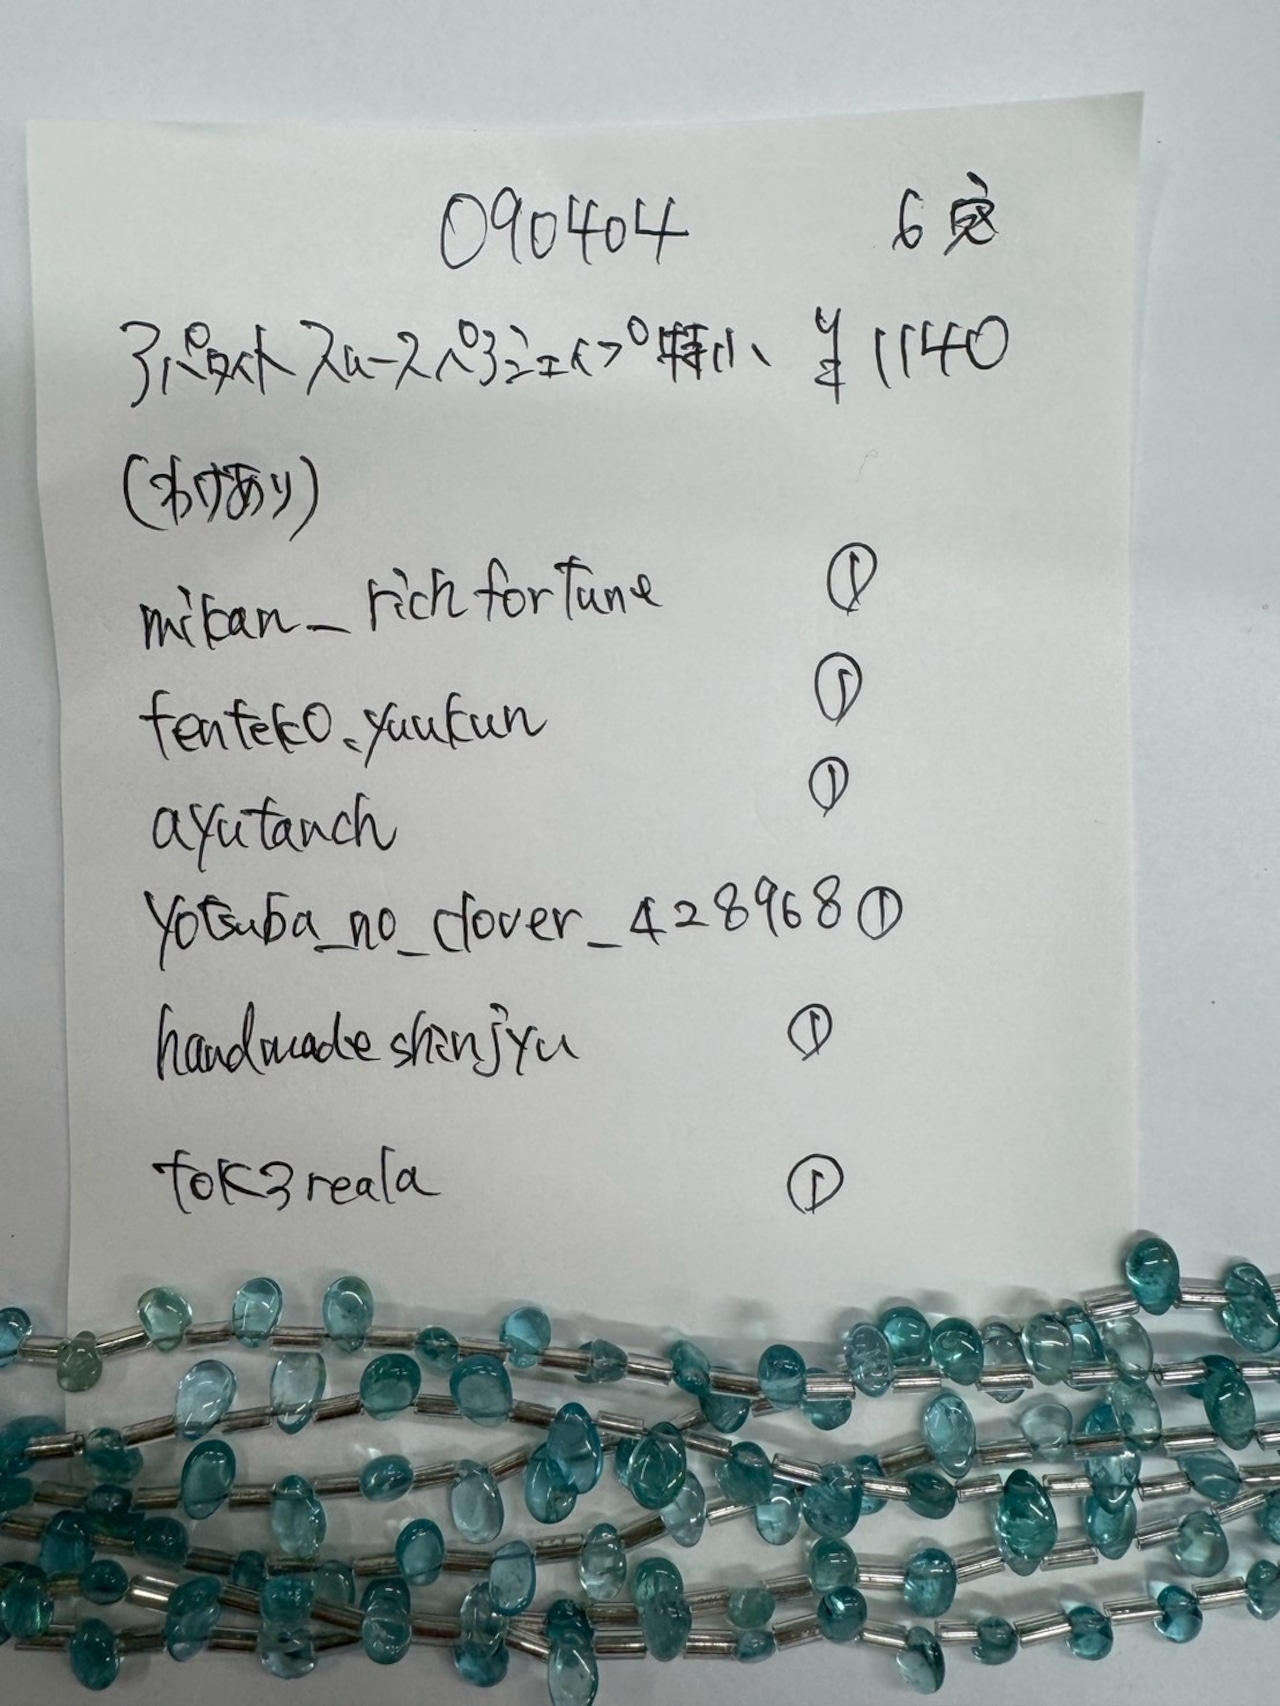 090404 6
アパタイトスムースペアシェイプ特小 ¥1140
(わけあり)
mikan_richfortune ①
tenteko.yuukun ①
ayutanch ①
yotsuba_no_clover_428968 ①
handmadeshinjyu ①
tok3reala ①